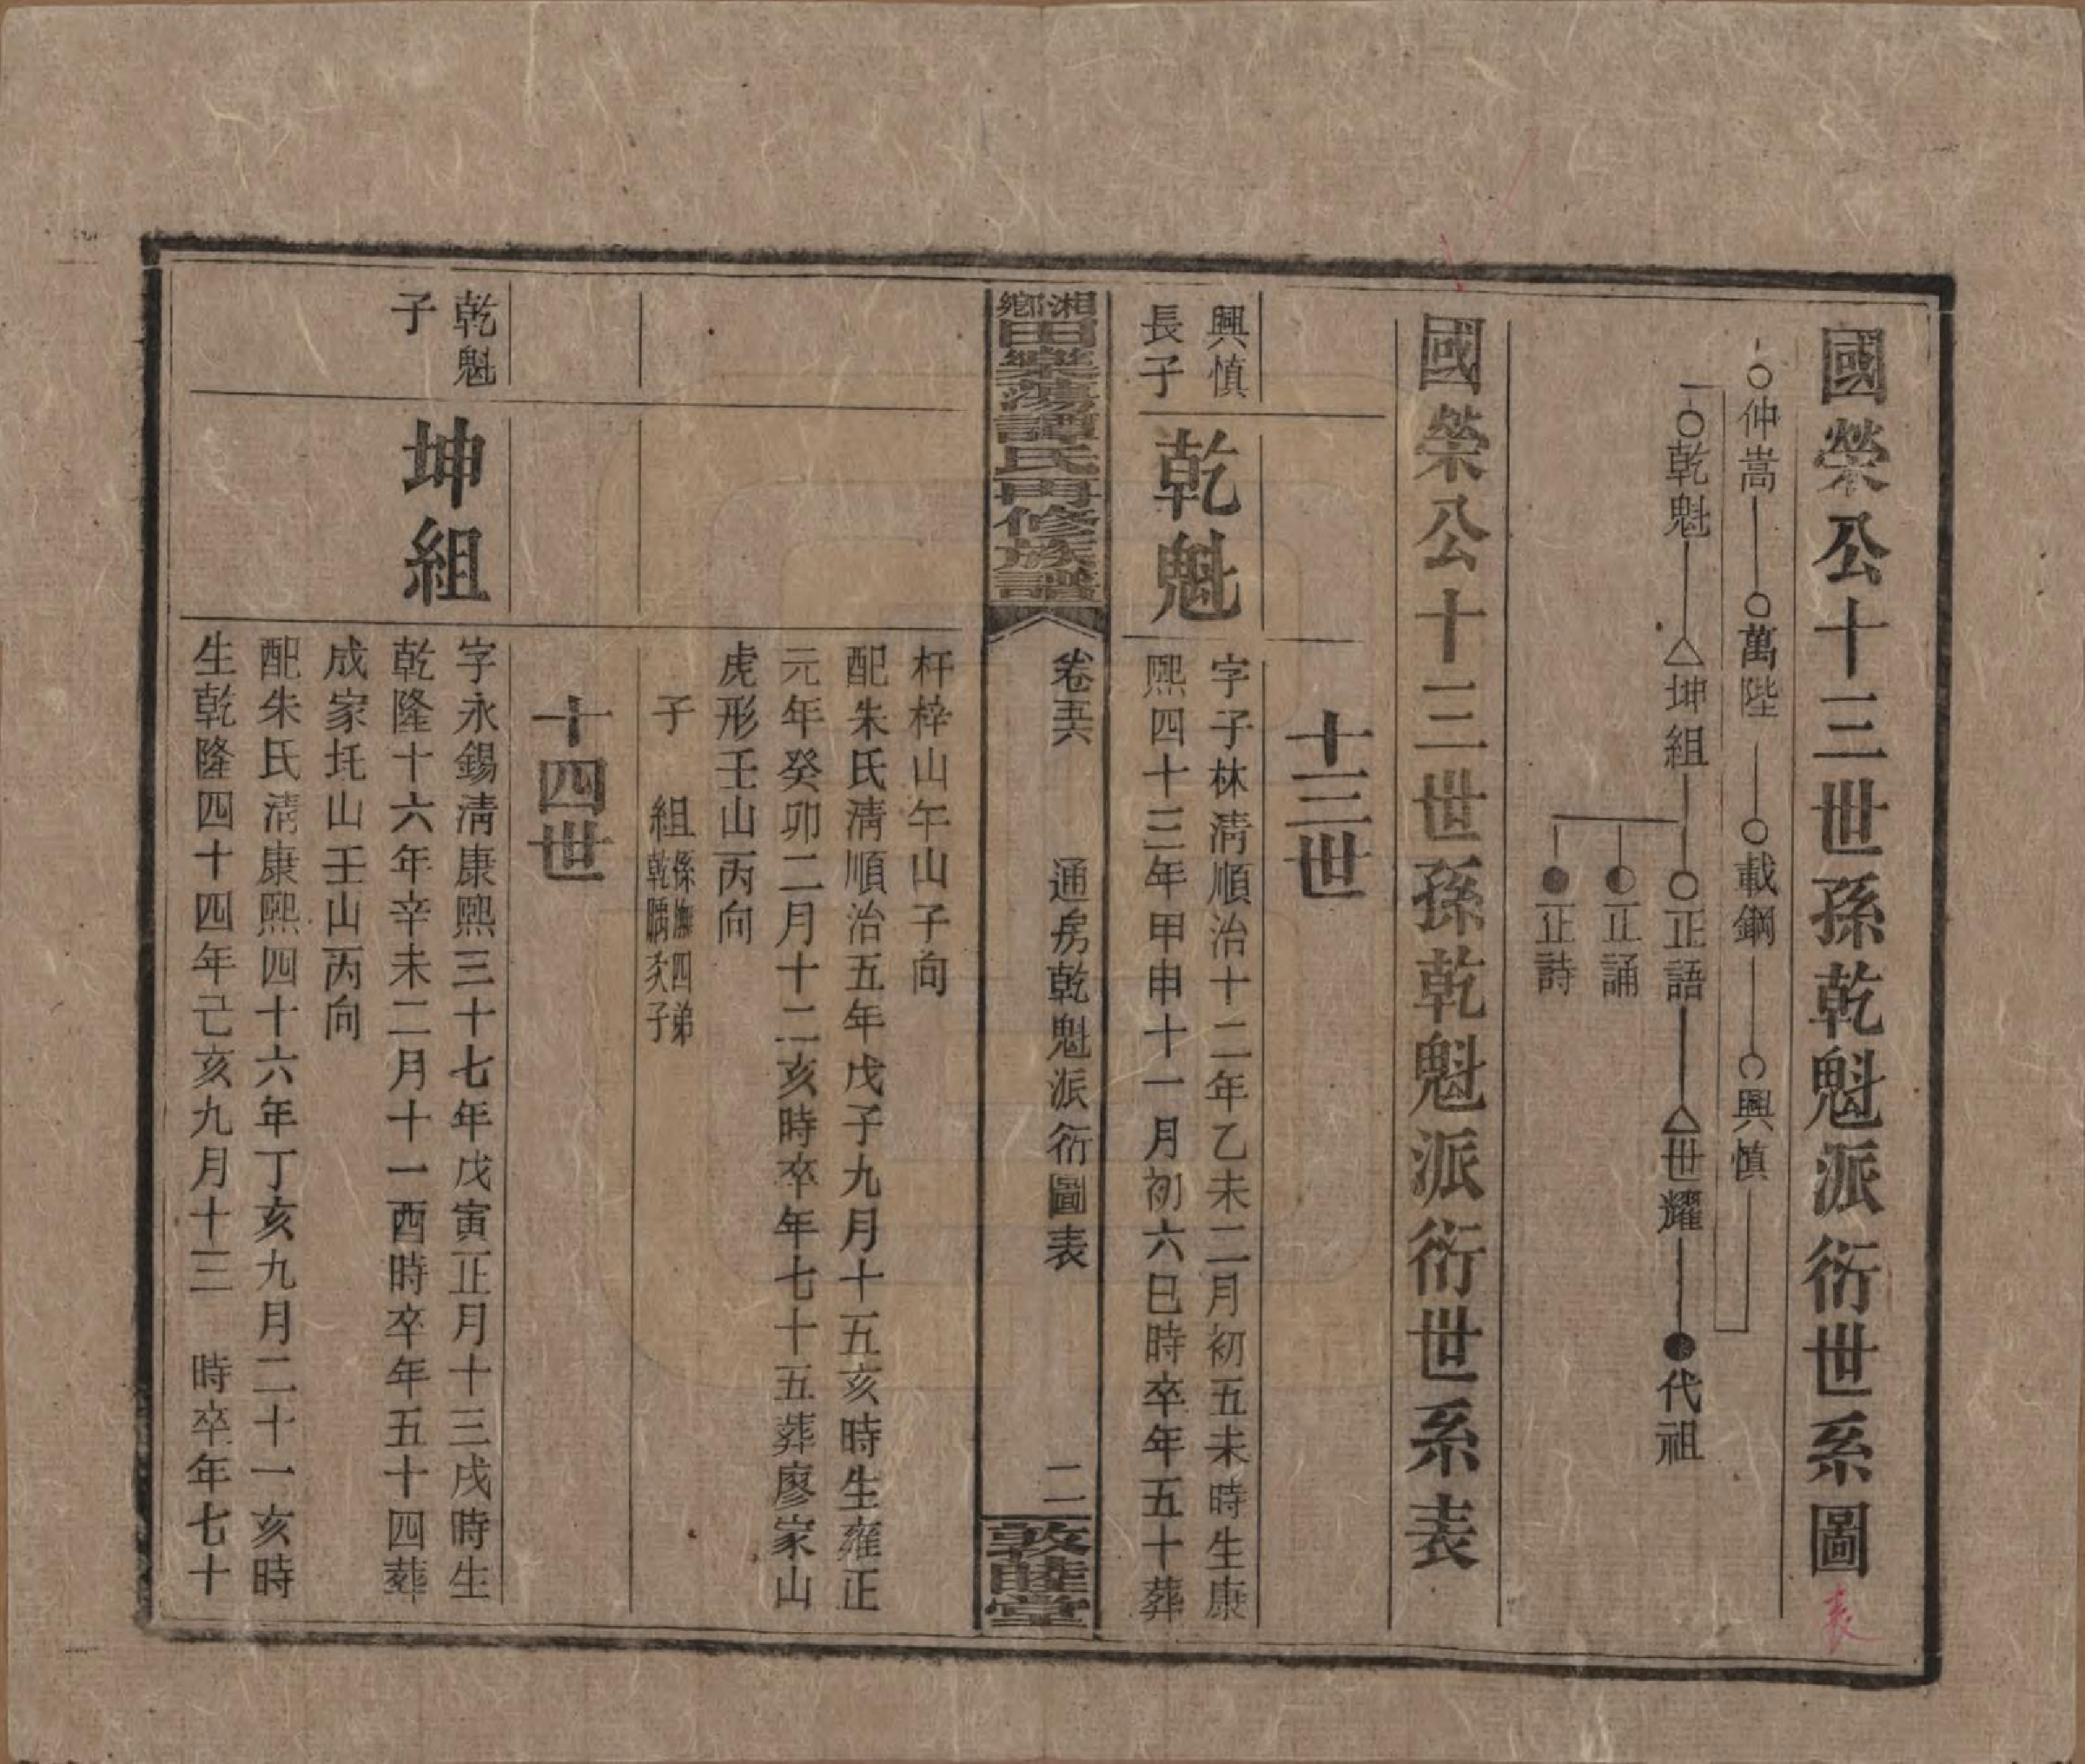 國榮公十三世孫乾魁派衍世系圖
表
仲嵩 萬陛 載鋼 興慎
乾魁 坤組 正語 世耀 代祖
正誦
正詩
國榮公十三世孫乾魁派衍世系表
十三世
興慎
長子
乾魁
字子林清順治十二年乙未二月初五未時生康
熙四十三年甲申十一月初六巳時卒年五十葬
湘鄉田樂蕩譚氏再修族譜
卷五六 通房乾魁派衍圖表 二
敦睦堂
杆梓山午山子向
配朱氏清順治五年戊子九月十五亥時生雍正
元年癸卯二月十二亥時卒年七十五葬廖家山
虎形壬山丙向
子 組係撫四弟
乾 次子
十四世
乾魁
子
坤組
字永錫清康熙三十七年戊寅正月十三戌時生
乾隆十六年辛未二月十一酉時卒年五十四葬
成家圫山壬山丙向
配朱氏清康熙四十六年丁亥九月二十一亥時
生乾隆四十四年己亥九月十三 時卒年七十